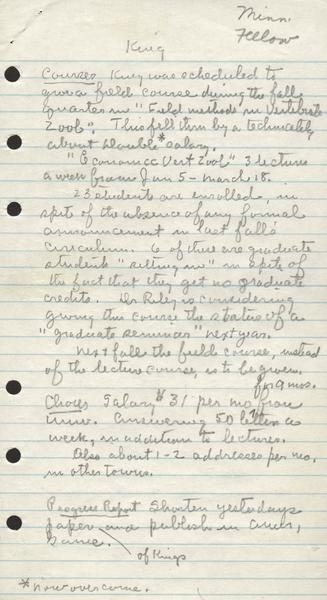 Minn.
Fellow
King
Courses King was scheduled to
give a field course during the fall
quarter in "Field methods in Vertebrate
Zool". This fell thru by a technicality
about double* salary.
"Economic Vert Zool" 3 lectures
a week from Jan 5 - March 18.
23 students are enrolled, in
spite of the absence of any formal
announcement in last fall's
curriculum. 6 of these are graduate
students "sitting in" in spite of
the fact that they get no graduate
credits. Dr Riley is considering
giving this course the status of a
"graduate seminar" next year.
Next fall the field course, instead
of the lecture course, is to be given.
Chores Salary $31 per mo from
Answering 50 letters a
week, in addition to lectures.
Also about 1-2 addresses per mo.
in other towns.
Progress Report Shorten yesterdays
paper and publish in Amer.
Game.
of Kings
*now overcome.